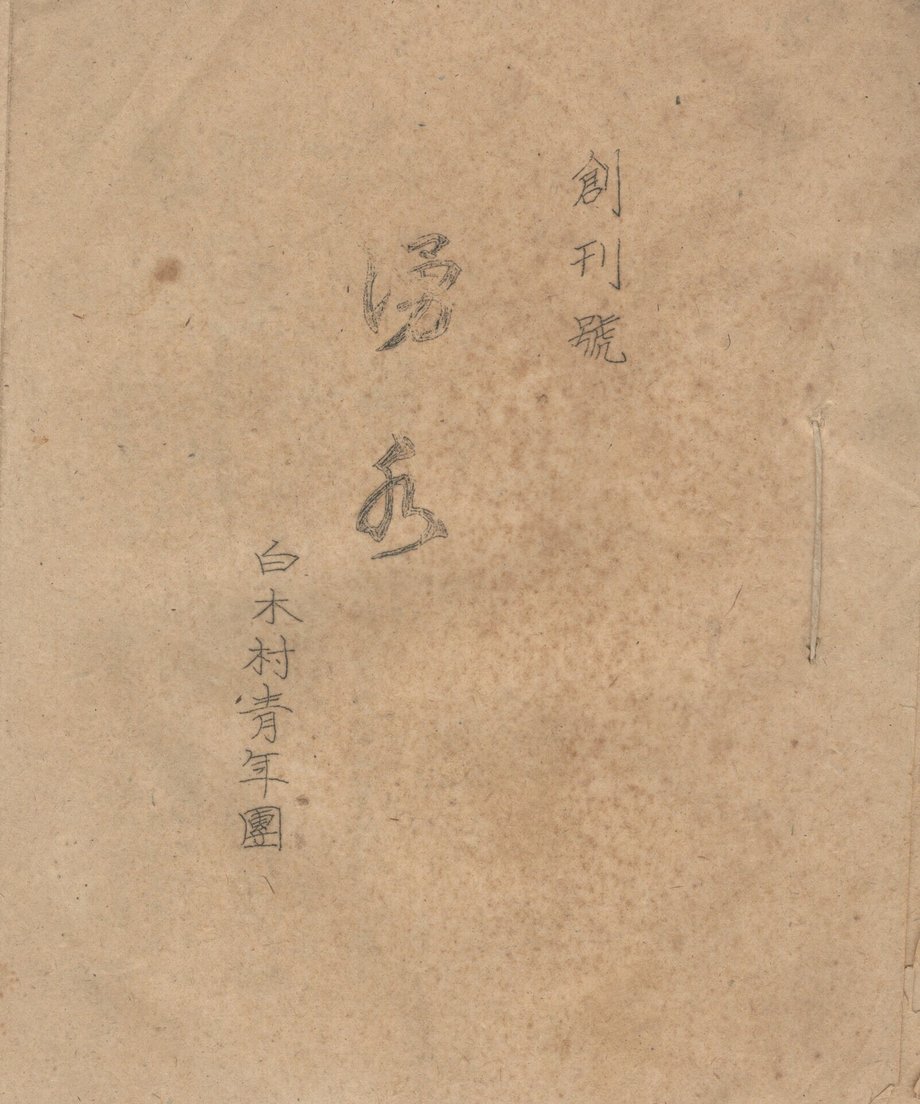 創刊號
湧水
白木村青年團